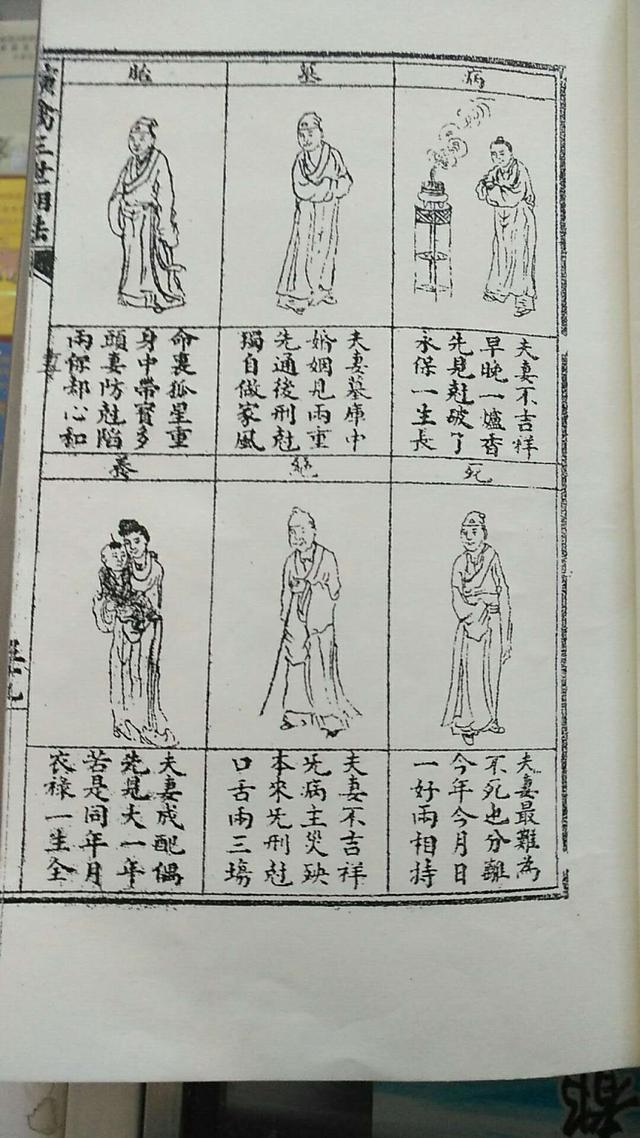 演禽三世相法
病
夫妻不吉祥
早晚一爐香
先見尅破了
永保一生長
墓
夫妻墓庫中
婚姻見兩重
先通後刑尅
獨自做家風
胎
命裏孤星重
身中帶寶多
頭妻防尅陷
兩你却心和
死
夫妻最難為
不死也分離
今年今月日
一好兩相持
絕
夫妻不吉祥
旡病主災殃
本來旡刑尅
口舌兩三塲
養
夫妻成配偶
先見夫一年
苦是同年月
衣祿一生全
都